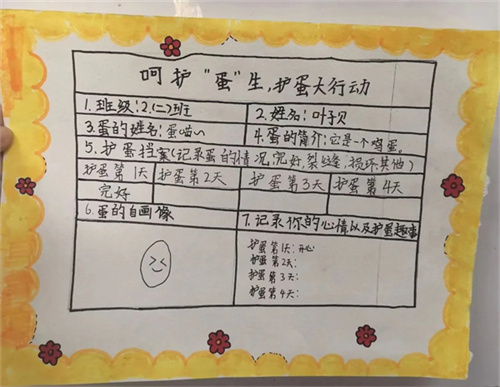 呵护“蛋”生,护蛋大行动
1.班级:2.(二)班
2.姓名:叶子贝
3.蛋的姓名:蛋喵~
4.蛋的简介:它是一个鸡蛋.
5.护蛋档案(记录蛋的情况,完好,裂缝,损坏,其他)
护蛋第1天 护蛋第2天 护蛋第3天 护蛋第4天
完好
6.蛋的自画像
7.记录你的心情以及护蛋趣事
护蛋第1天:开心
护蛋第2天:
护蛋第3天:
护蛋第4天: